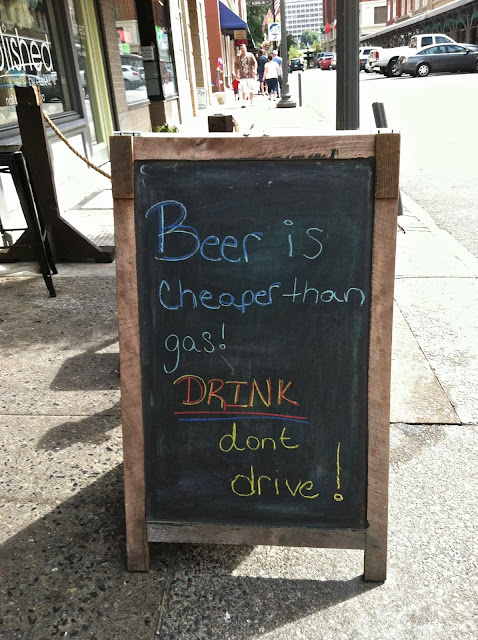 Beer is
cheaper than
gas!
DRINK
dont
drive!